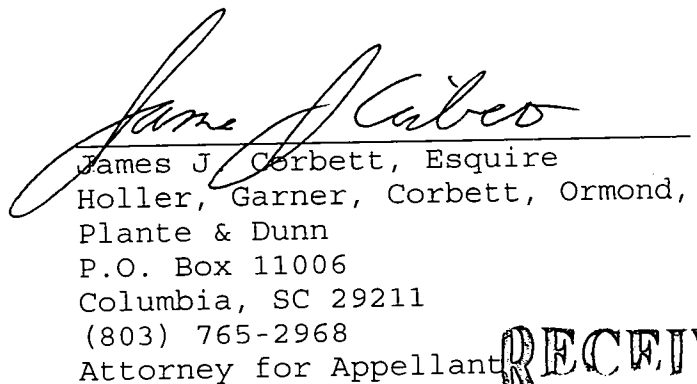 James J. Corbett, Esquire
Holler, Garner, Corbett, Ormond,
Plante & Dunn
P.O. Box 11006
Columbia, SC 29211
(803) 765-2968
Attorney for Appellant
RECEIV